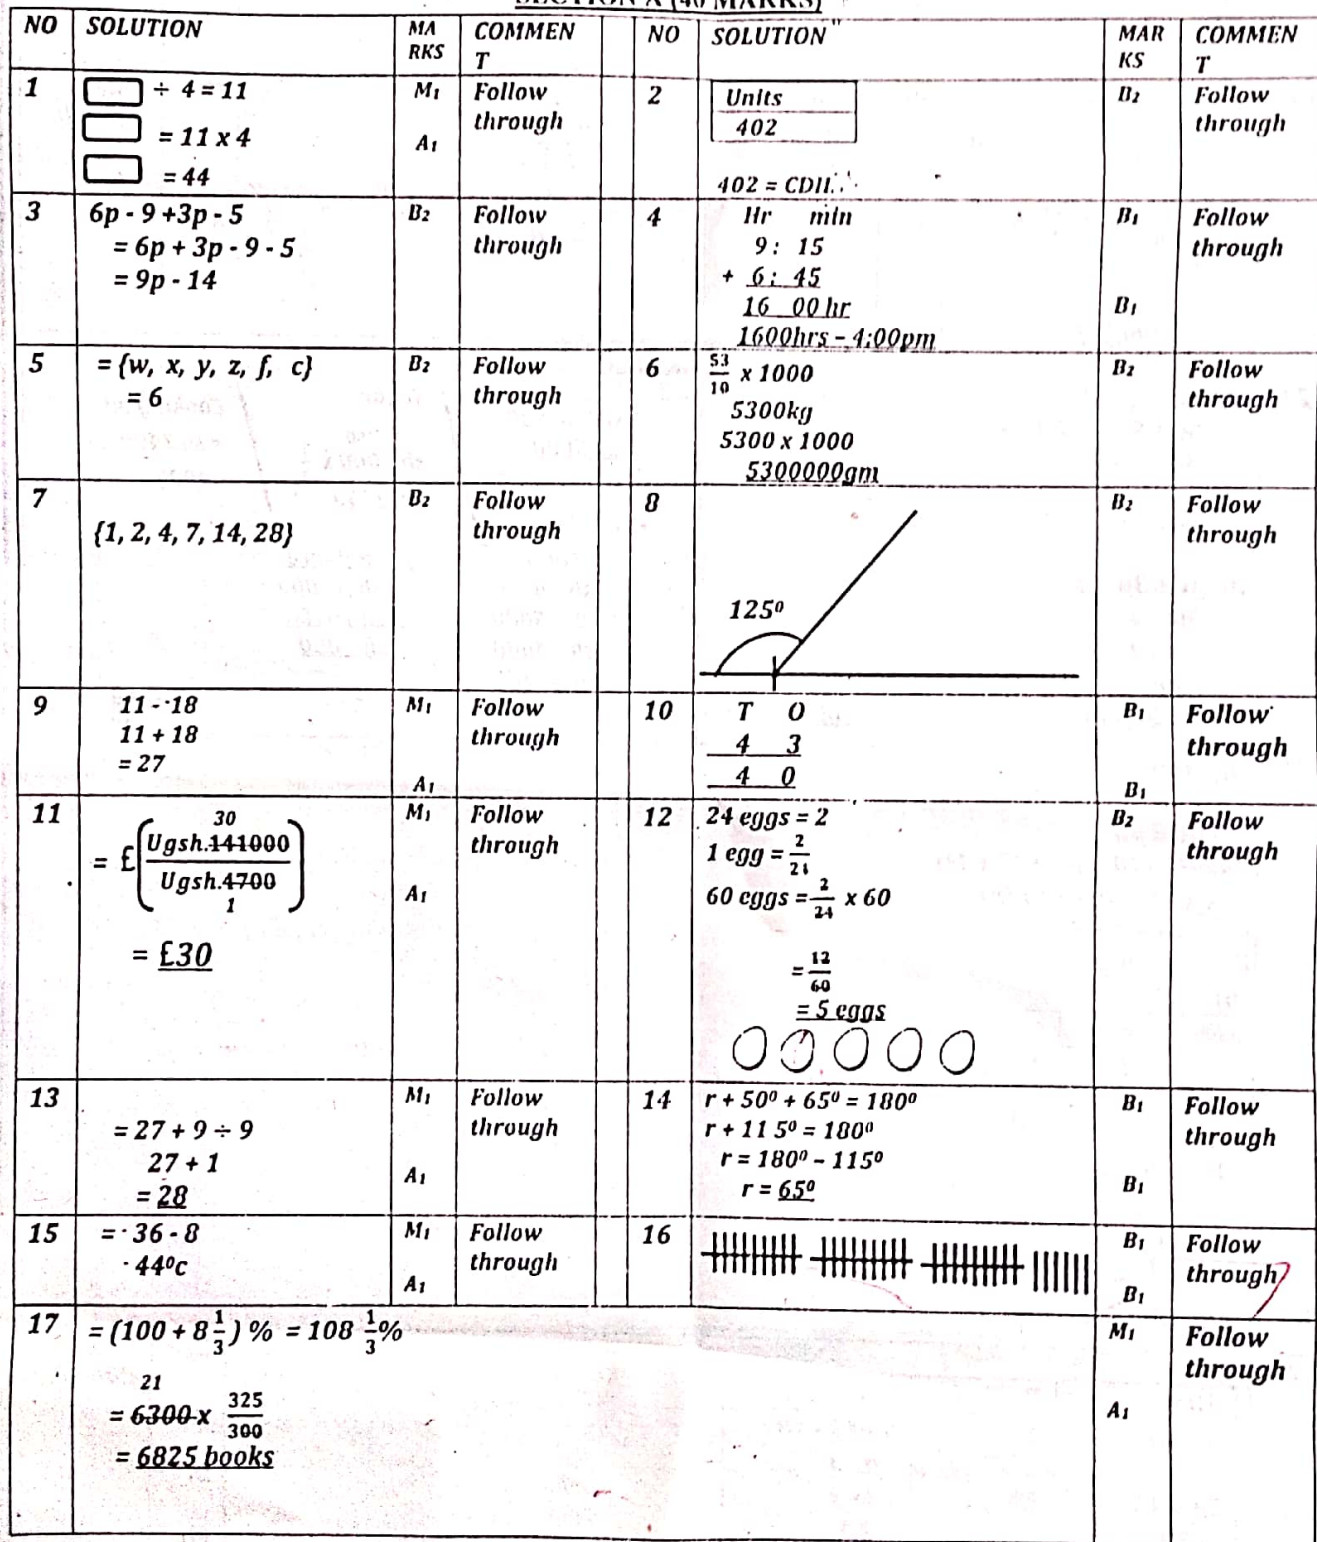 SECTION A (40 MARKS)
NO SOLUTION MA RKS COMMEN T NO SOLUTION MAR KS COMMEN T
1
÷ 4 = 11
= 11 x 4
= 44
M1
A1
Follow
through
2
Units
402
402 = CDII
B2
Follow
through
3
6p - 9 +3p - 5
= 6p + 3p - 9 - 5
= 9p - 14
B2
Follow
through
4
Hr min
9: 15
+ 6: 45
16 00 hr
1600hrs – 4:00pm
B1
B1
Follow
through
5
= {w, x, y, z, f, c}
= 6
B2
Follow
through
6
53/10 x 1000
5300kg
5300 x 1000
5300000gm
B2
Follow
through
7
{1, 2, 4, 7, 14, 28}
B2
Follow
through
8
125⁰
B2
Follow
through
9
11 - -18
11 + 18
= 27
M1
A1
Follow
through
10
T O
4 3
4 0
B1
B1
Follow
through
11
30
= £(Ugsh.141000/Ugsh.4700)
1
= £30
M1
A1
Follow
through
12
24 eggs = 2
1 egg = 2/24
60 eggs = 2/24 x 60
= 12/60
= 5 eggs
B2
Follow
through
13
= 27 + 9 ÷ 9
27 + 1
= 28
M1
A1
Follow
through
14
r + 50⁰ + 65⁰ = 180⁰
r + 11 5⁰ = 180⁰
r = 180⁰ – 115⁰
r = 65⁰
B1
B1
Follow
through
15
= -36 - 8
-44⁰c
M1
A1
Follow
through
16
B1
B1
Follow
through
17
= (100 + 8 1/3) % = 108 1/3%
21
= 6300 x 325/300
= 6825 books
M1
A1
Follow
through